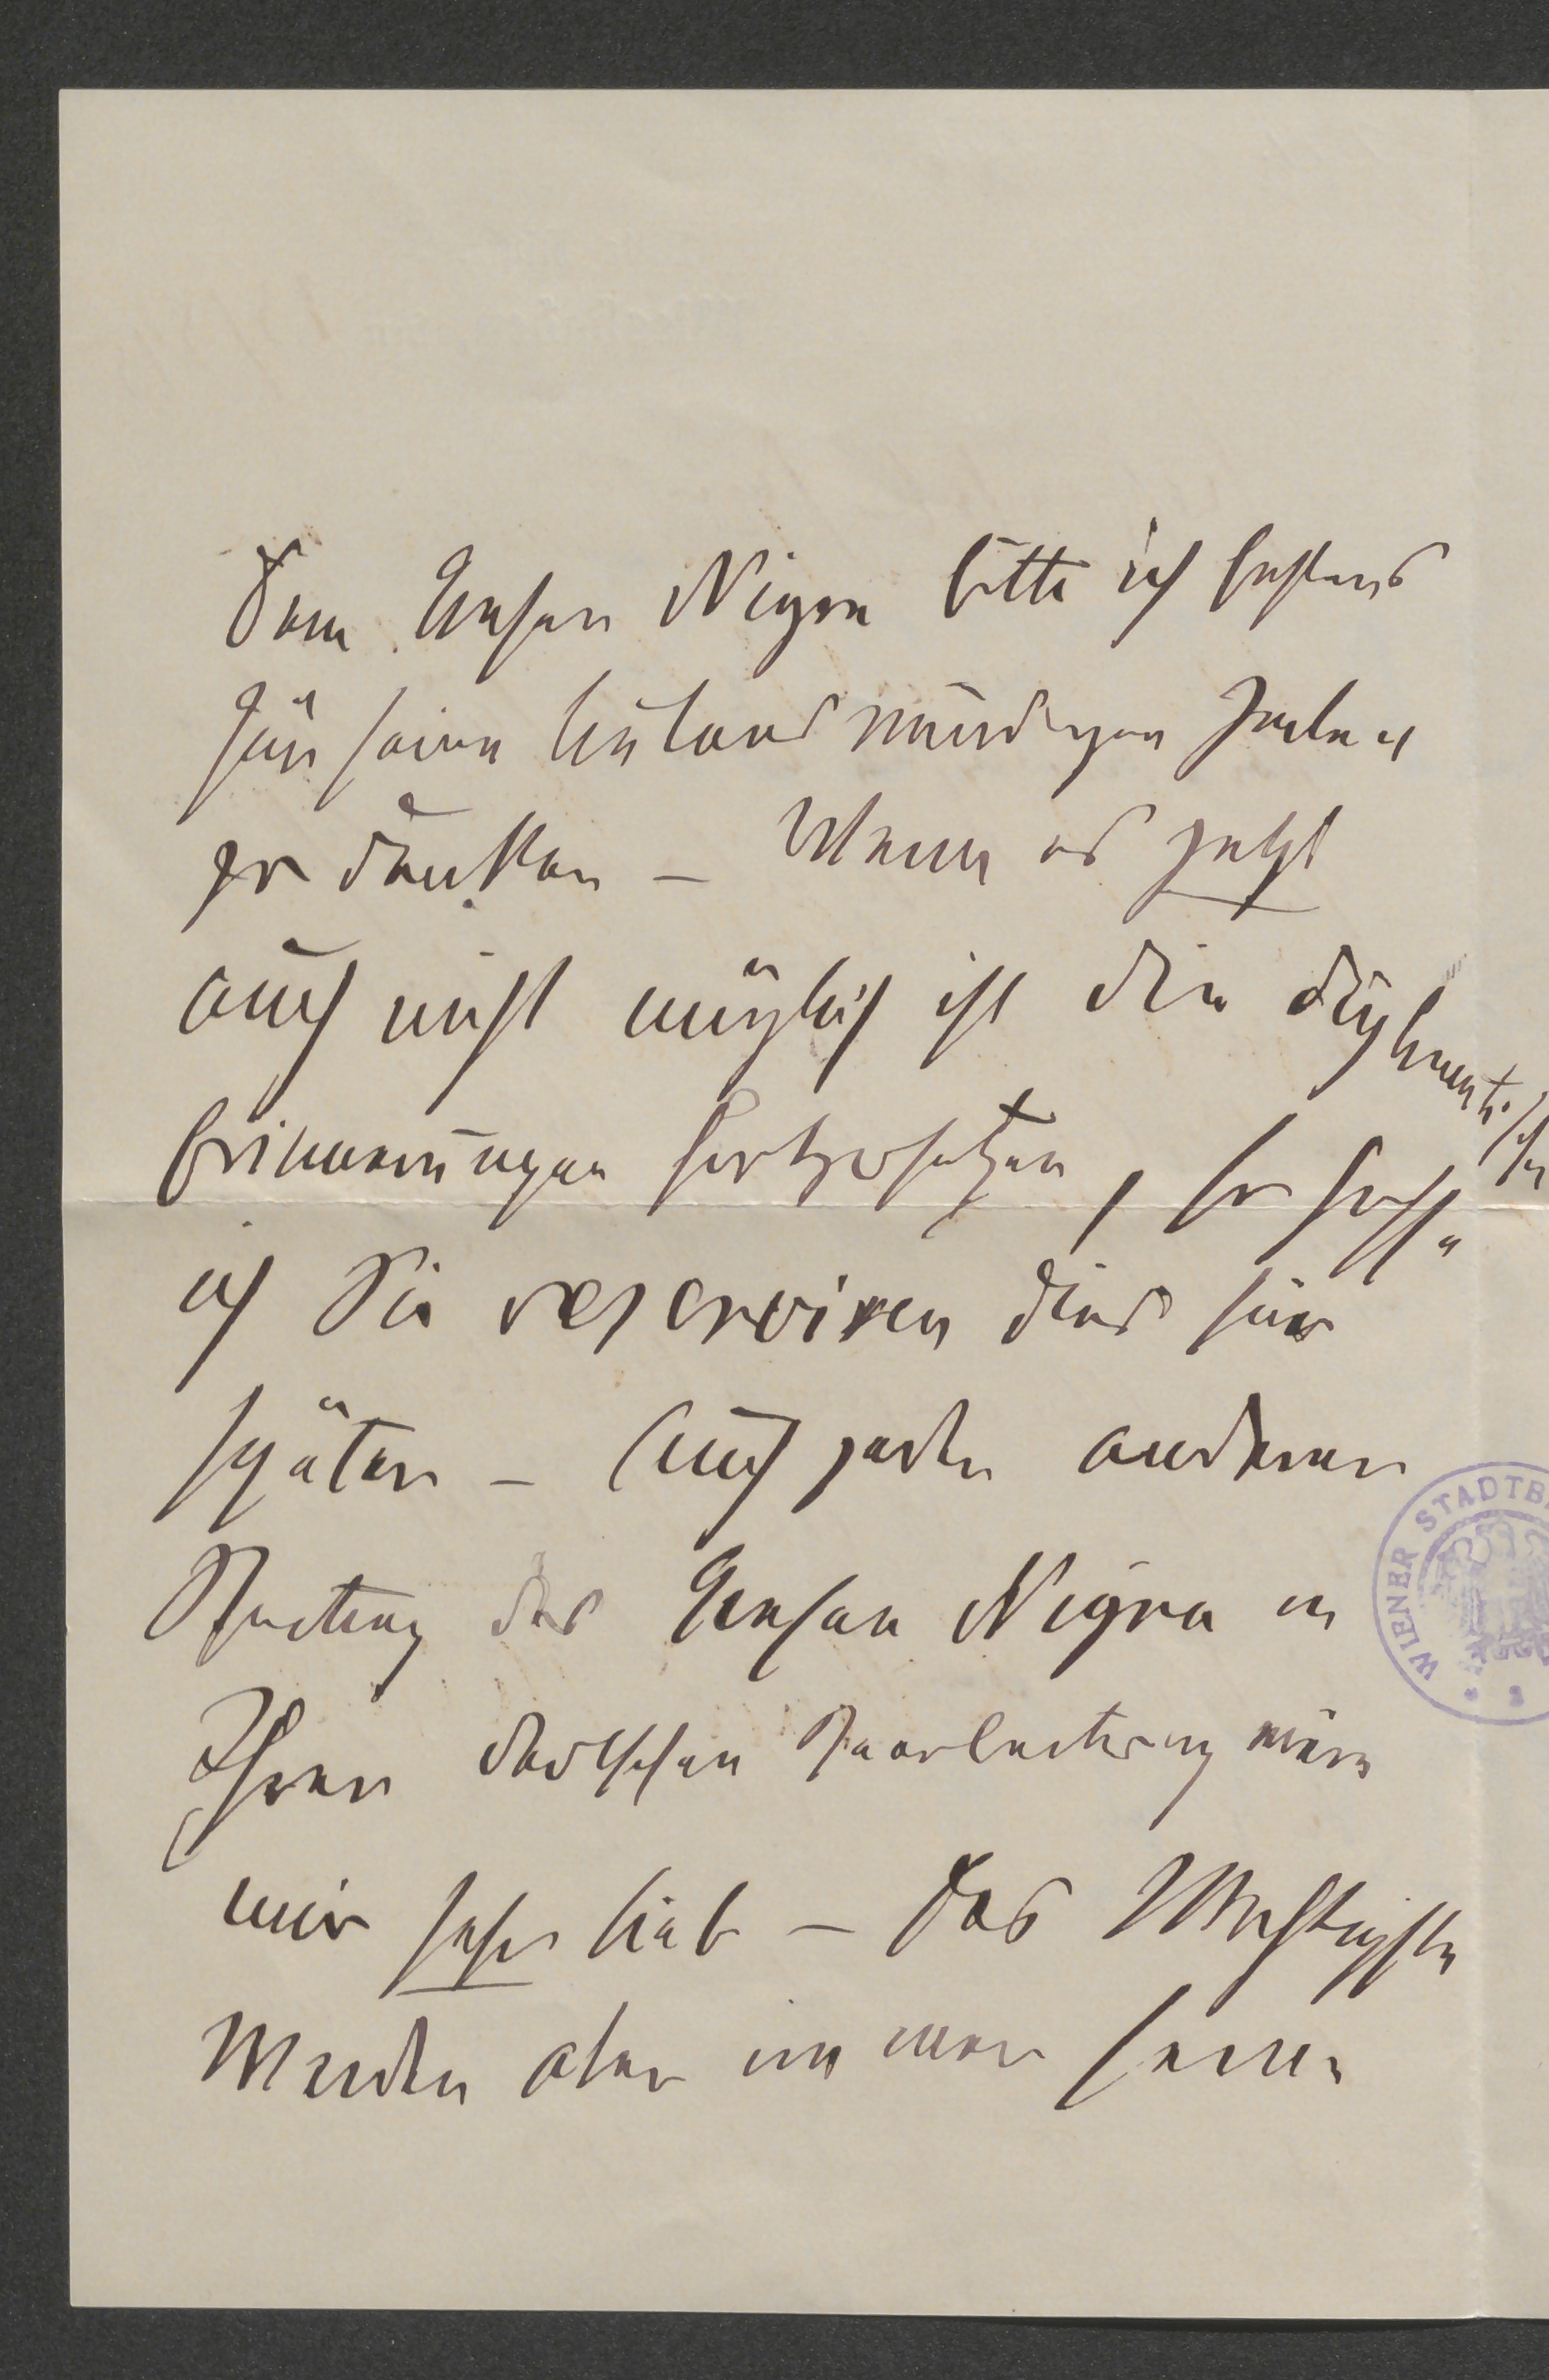 Dem Grafen Nigra bitte ich bestens
für seine liebenswürdigen Zeilen
zu danken – Wenn es jetzt
auch nicht möglich ist die diplomatischen
Erinnerungen fortzusetzen, so hoffe
ich Sie reserviren dies für
später – Auch jeder anderer
Beitrag des Grafen Nigra in
Ihrer deutschen Bearbeitung wäre
mir sehr lieb – Das Wichtigste
werden aber immer seine
WIENER STADTB